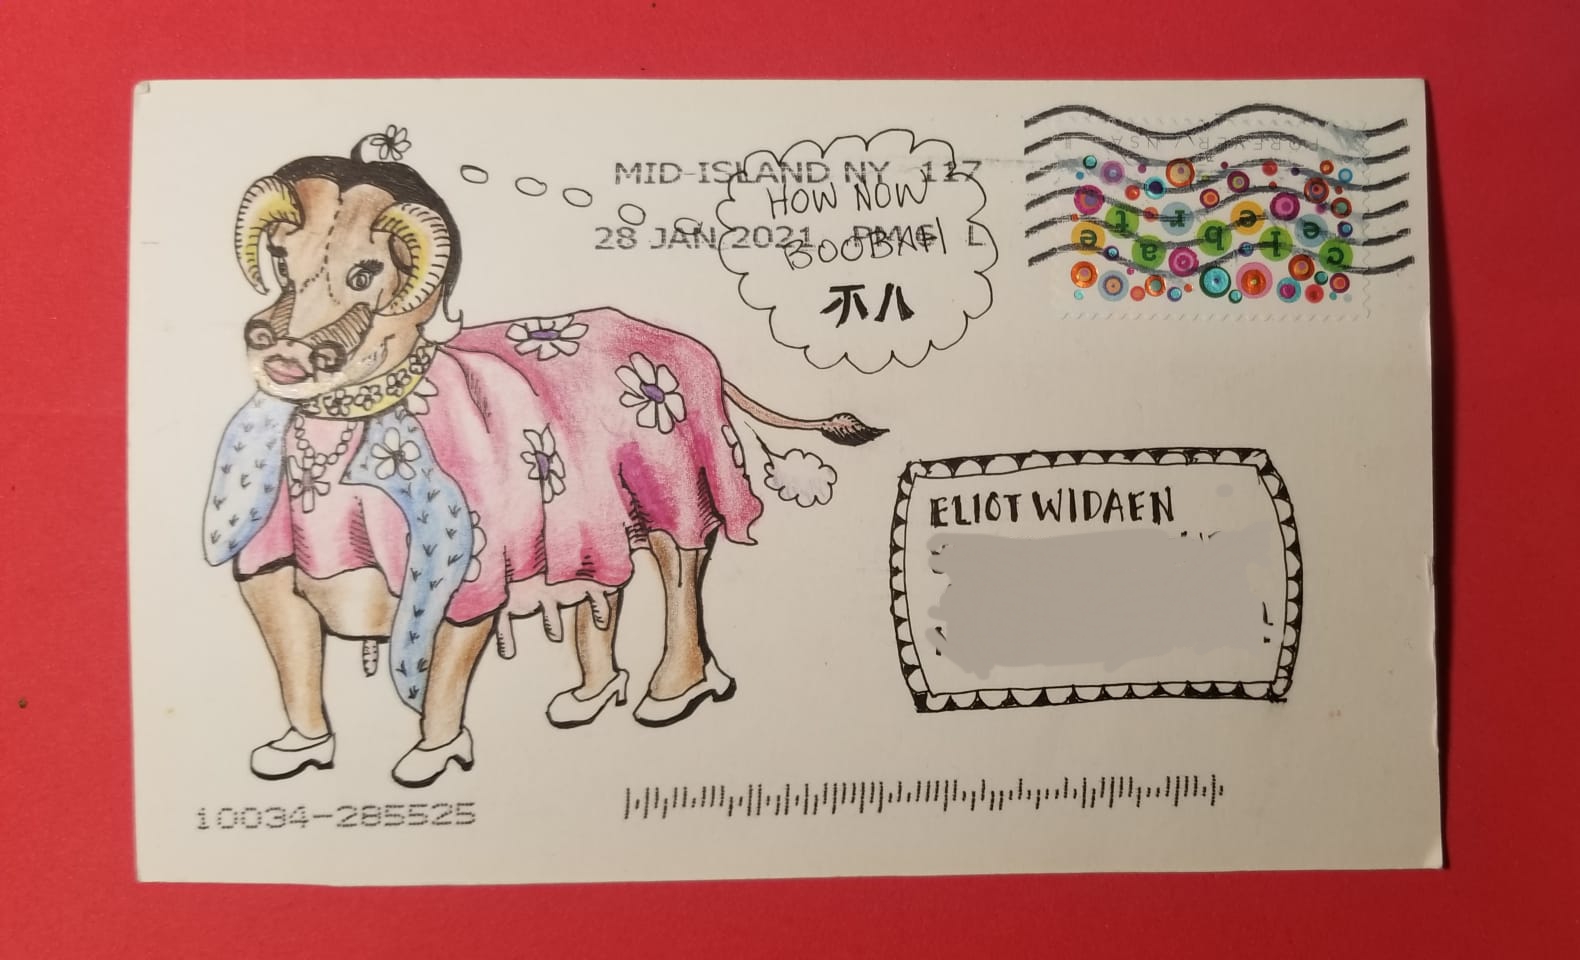 MID-ISLAND NY 117
28 JAN 2021 PM 6 L
HOW NOW
BOOBAH
FOREVER / USA
celebrate
ELIOT WIDAEN
i0034-285525